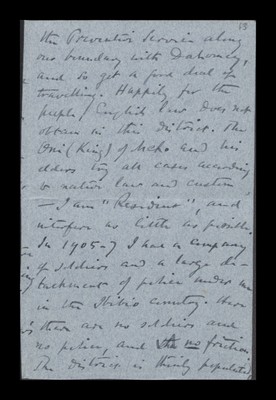 13
the Preventive Service along
our boundary with Dahomey,
and so get a good deal of
travelling. Happily for the
people, English law does not
obtain in this district. The
Oni (King) of and his
elders try all cases according
to native law and custom
— I am "Resident", and
interfere as little as possible.
In 1905-7 I had a company
of soldiers and a large de-
tachment of police under me
in the Ibibio country. Here
there are no soldiers and
no police, and no friction.
The district is thinly populated,